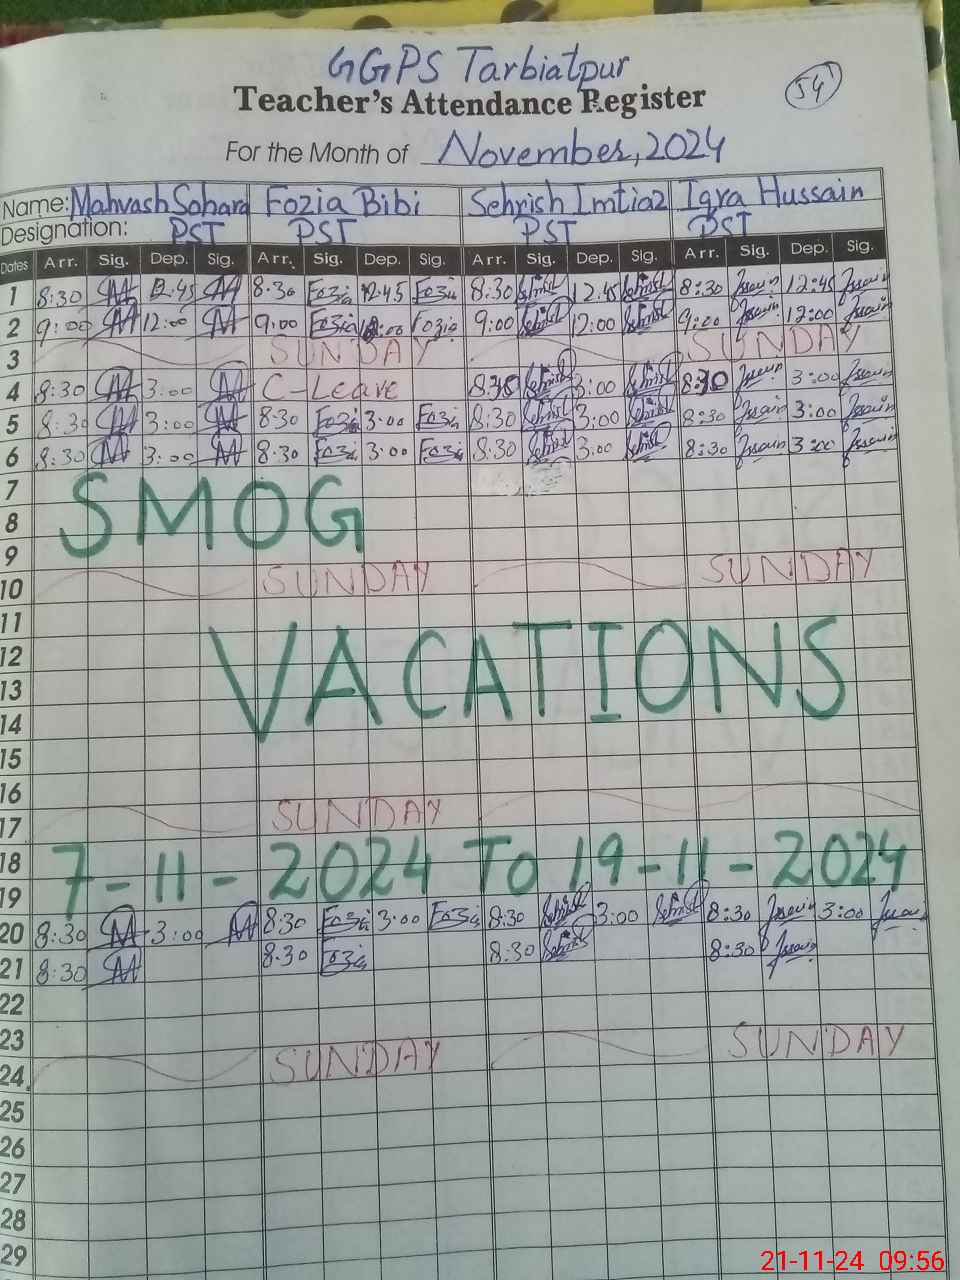 GGPS Tarbiatpur
Teacher's Attendance Register
54
For the Month of November, 2024
Name: Mahvash Sohara Fozia Bibi Sehrish Imtiaz Iqra Hussain
Designation: PST PST PST PST
Dates Arr. Sig. Dep. Sig. Arr. Sig. Dep. Sig. Arr. Sig. Dep. Sig. Arr. Sig. Dep. Sig.
1 8:30 12:45 8:30 Fozia 12:45 Fozia 8:30 12:45 8:30 12:45
2 9:00 12:00 9:00 Fozia 12:00 Fozia 9:00 12:00 9:00 12:00
3 SUNDAY SUNDAY
4 8:30 3:00 C-Leave 8:30 3:00 8:30 3:00
5 8:30 3:00 8:30 Fozia 3:00 Fozia 8:30 3:00 8:30 3:00
6 8:30 3:00 8:30 Fozia 3:00 Fozia 8:30 3:00 8:30 3:00
7
SMOG
8
9
10 SUNDAY SUNDAY
11
12 VACATIONS
13
14
15
16
17 SUNDAY
18
7-11-2024 TO 19-11-2024
19
20 8:30 3:00 8:30 Fozia 3:00 Fozia 8:30 3:00 8:30 3:00
21 8:30 8:30 Fozia 8:30 8:30
22
23
24 SUNDAY SUNDAY
25
26
27
28
29
21-11-24 09:56